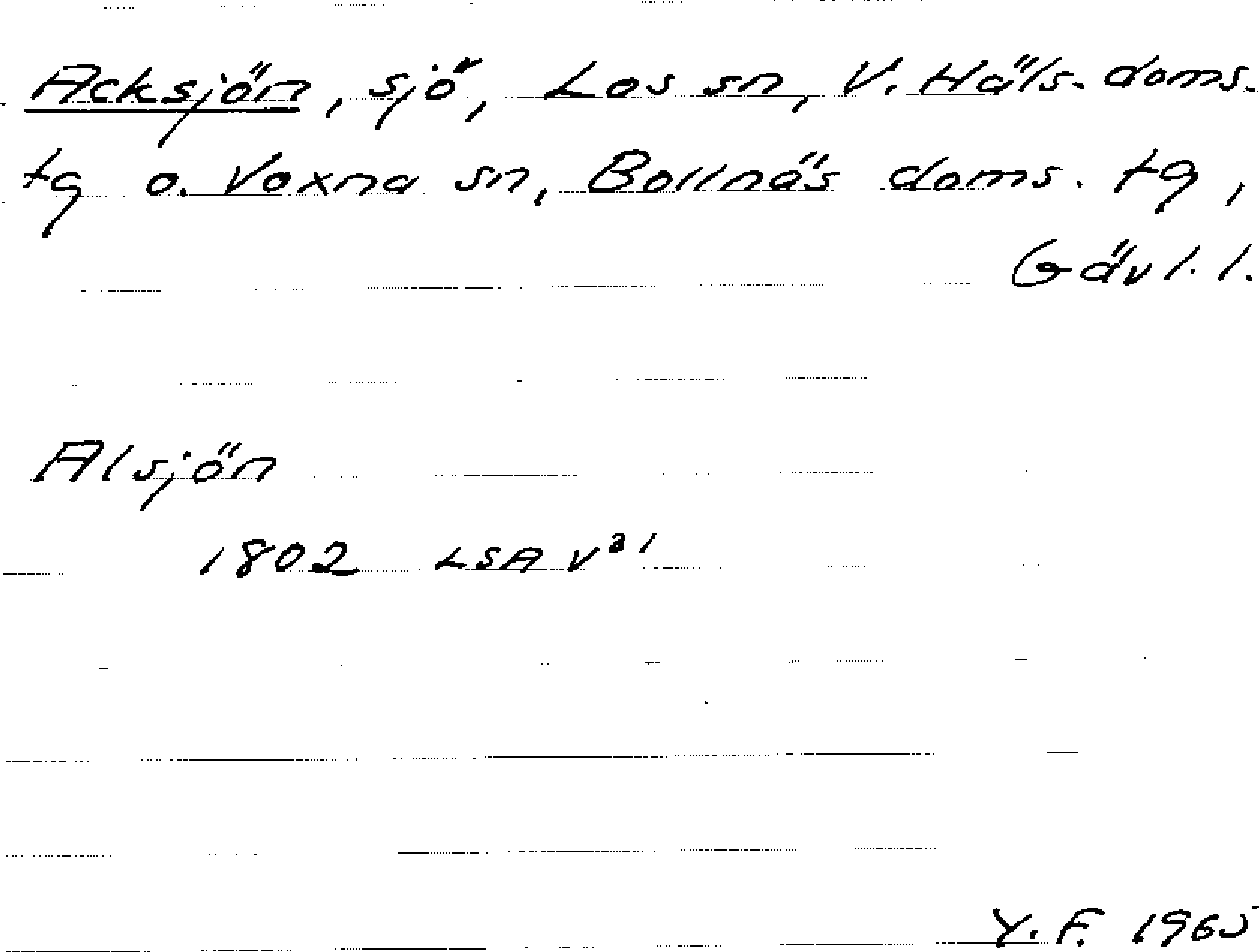 Acksjön, sjö, Los sn, V. Häls. doms.
tg o. Voxna sn, Bollnäs doms. tg,
Gävl. l.
Alsjön
1802 LSA V³¹
Y. F. 1965